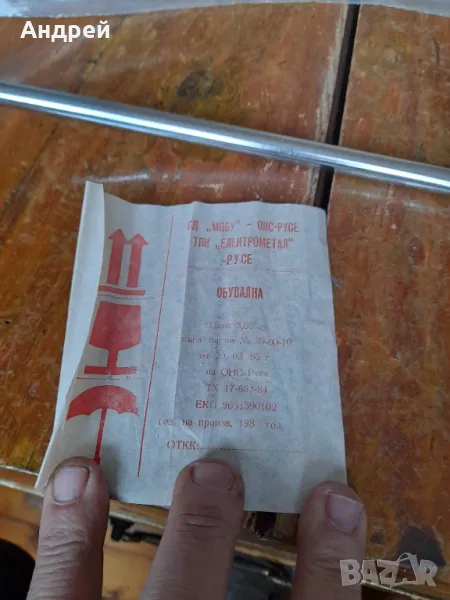 Андрей
СД „МПБУ" - ОНС-РУСЕ
ТПК „ЕЛЕКТРОМЕТАЛ"
-РУСЕ
ОБУВАЛНА
Цена 3,03 лв
от 29 03 85 г.
на ОНС-Русе
ТХ 17-663-84
ЕКП 9651590102
год. на произв. 198 год.
ОТКК:
BAZAR